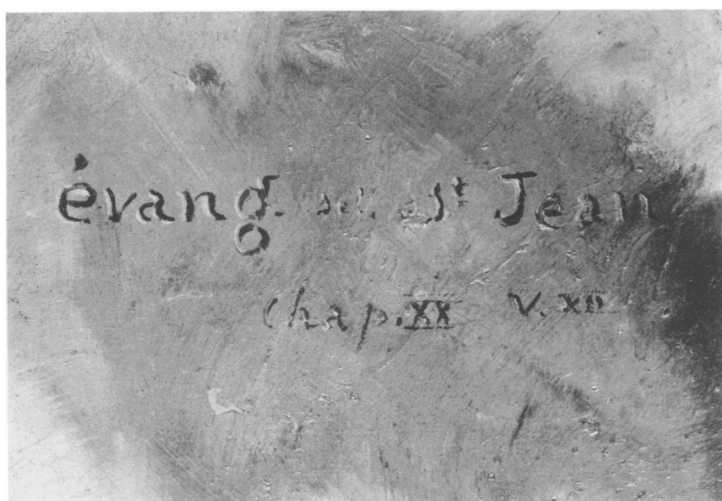 évang. St Jean
Chap. XX V. XII